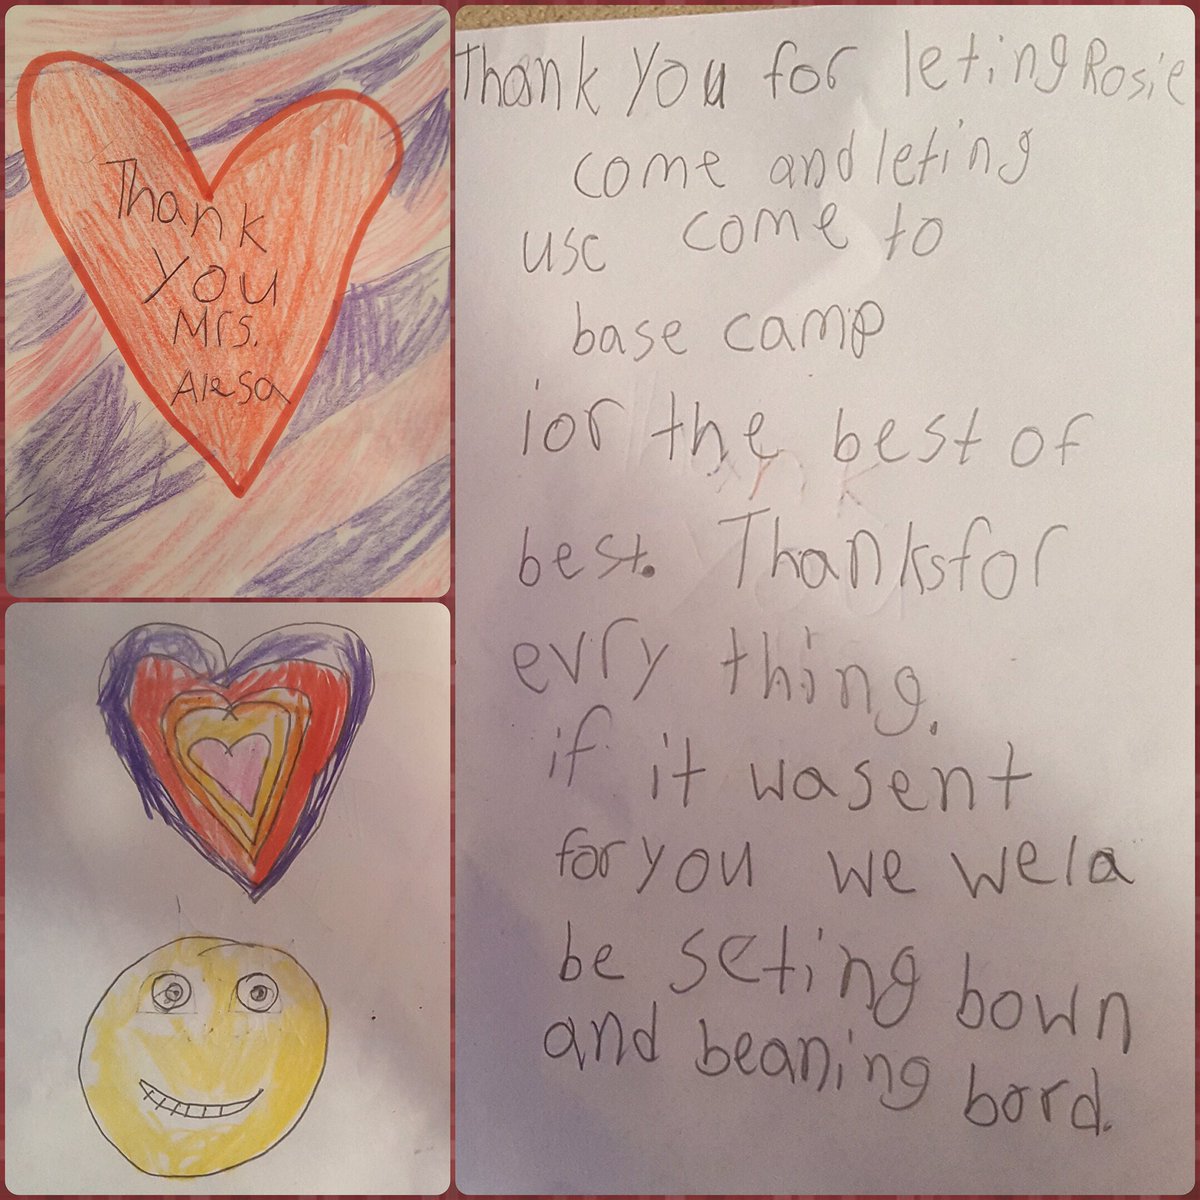 Thank
you
Mrs.
Alesa
Thank you for leting Rosie
come and leting
use come to
base camp
ior the best of
best. Thanks for
evry thing.
if it wasent
for you we wela
be seting bown
and beaning bord.